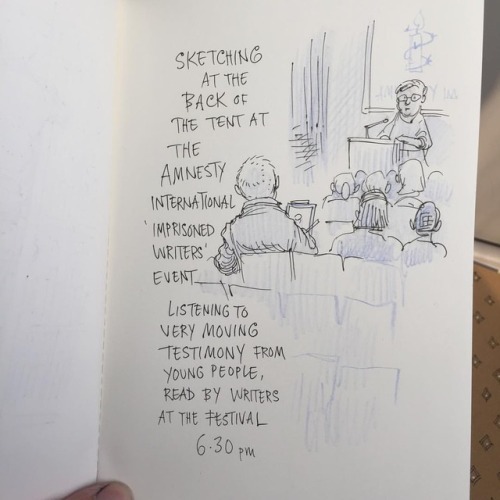 SKETCHING
AT THE
BACK OF
THE TENT AT
THE
AMNESTY
INTERNATIONAL
'IMPRISONED
WRITERS'
EVENT
LISTENING TO
VERY MOVING
TESTIMONY FROM
YOUNG PEOPLE,
READ BY WRITERS
AT THE FESTIVAL
6.30 pm